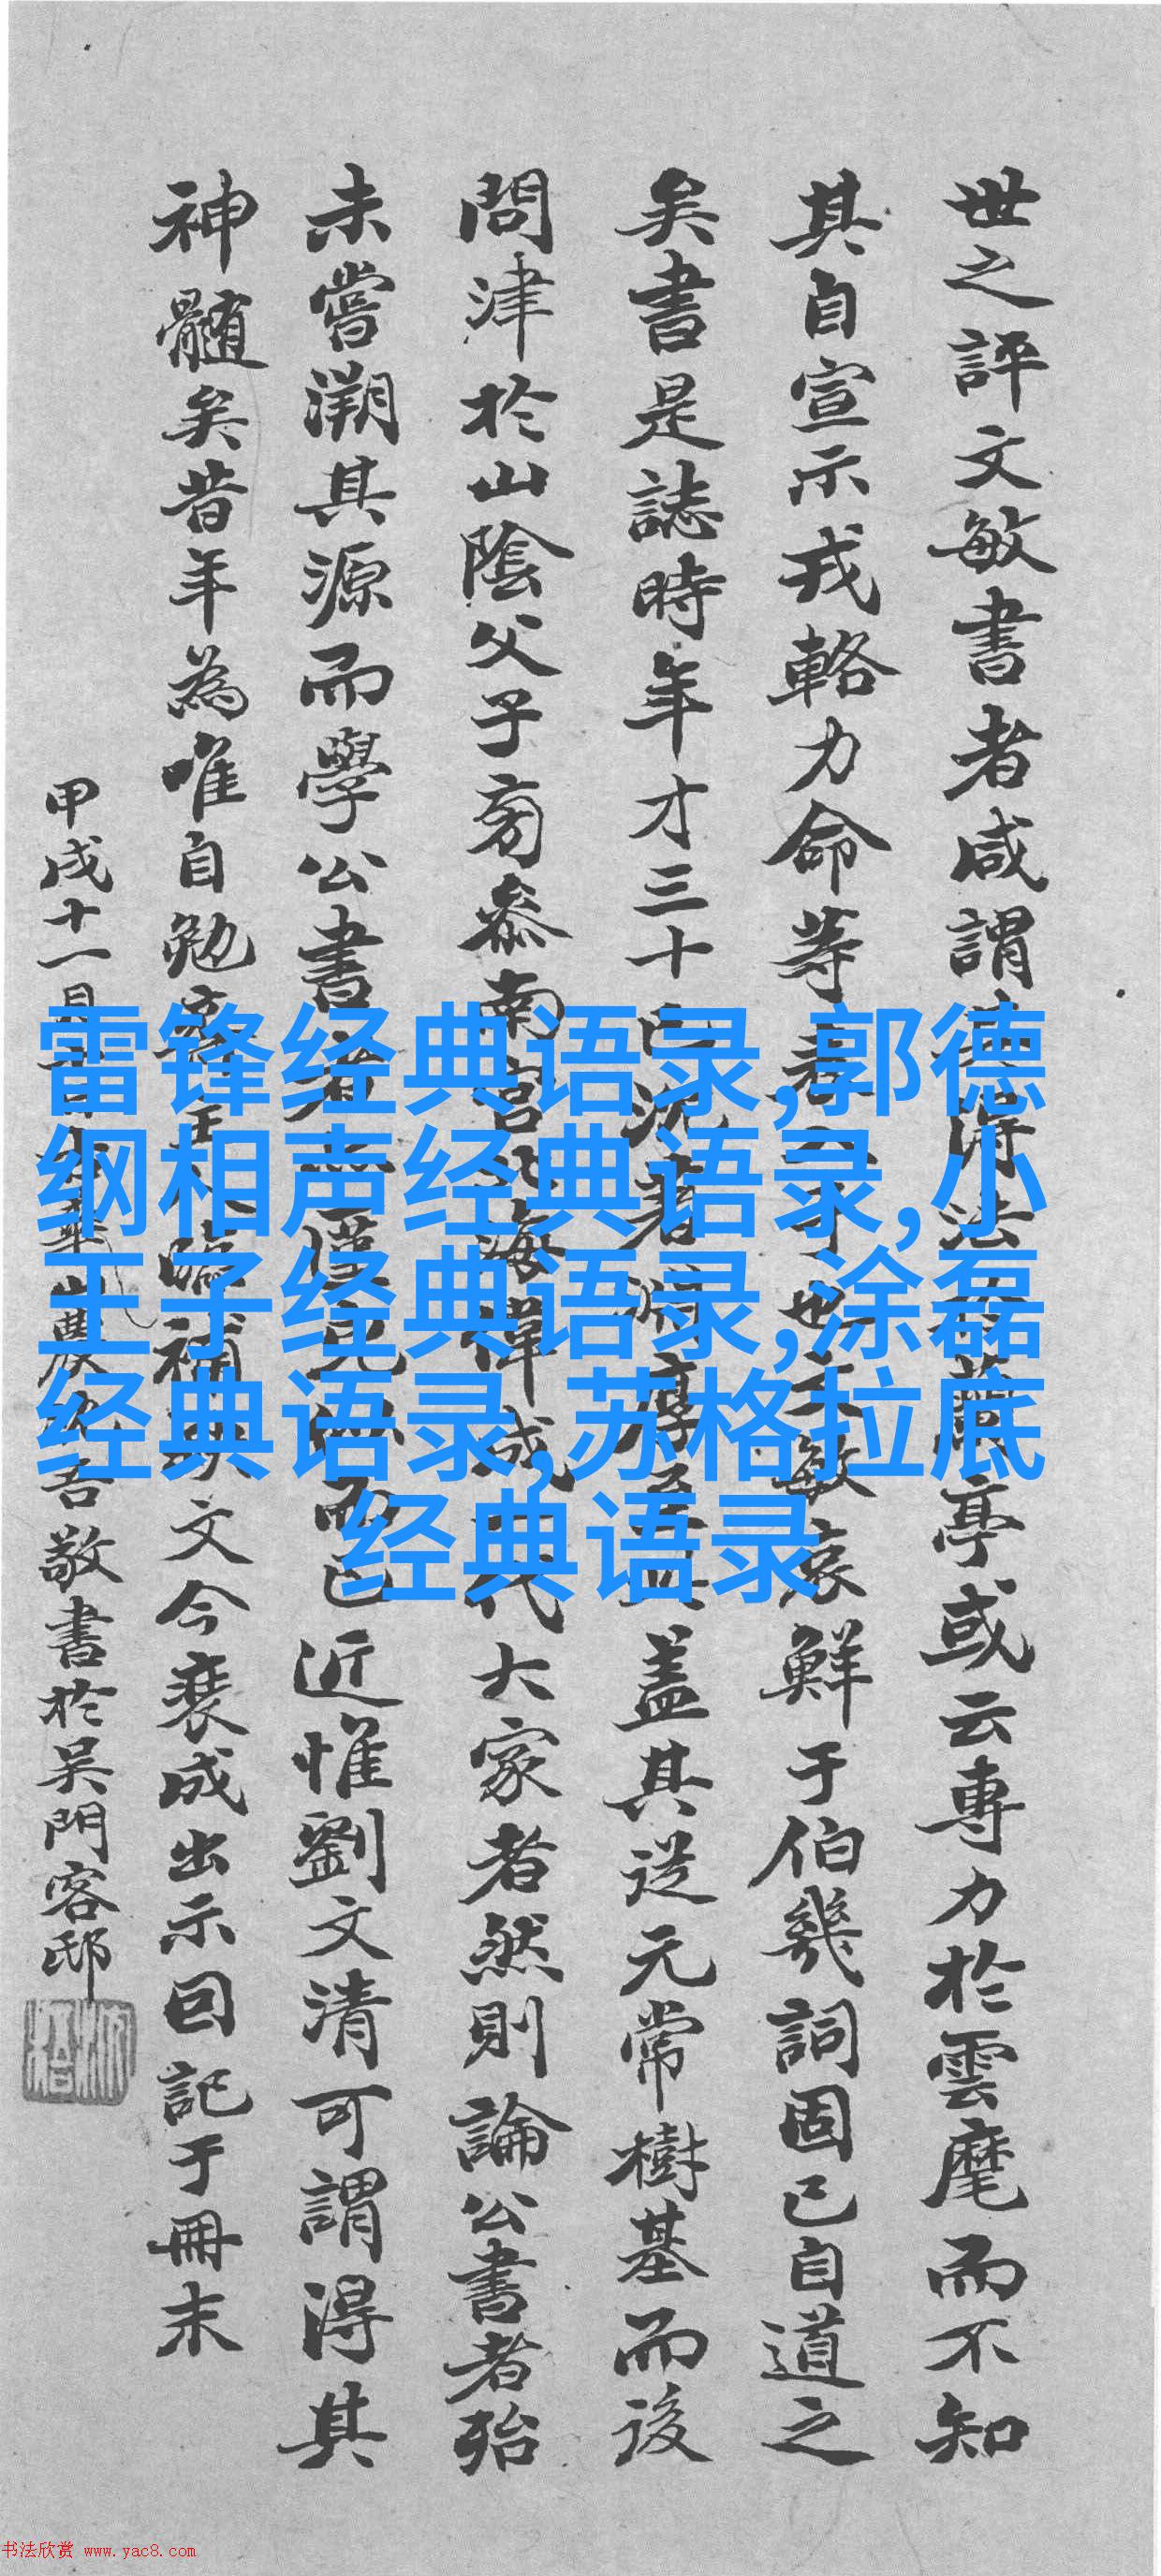 世之評文敏書者咸謂
亭或云專力於雲麾而不知
其自宣示戎輅力命等
鮮于伯幾詞固已自道之
矣書是誌時年才三十
蓋其從元常樹基而後
問津於山陰父子旁參南宮
大家者然則論公書者殆
未嘗溯其源而學公書者
近惟劉文清可謂得其
神髓矣昔年為唯自勉
文今裝成出示囙記于冊末
甲戌十一月
吾敬書於吴門客邸
雷锋经典语录,郭德
纲相声经典语录,小
王子经典语录,涂磊
经典语录,苏格拉底
经典语录
书法欣赏 www.yac8.com